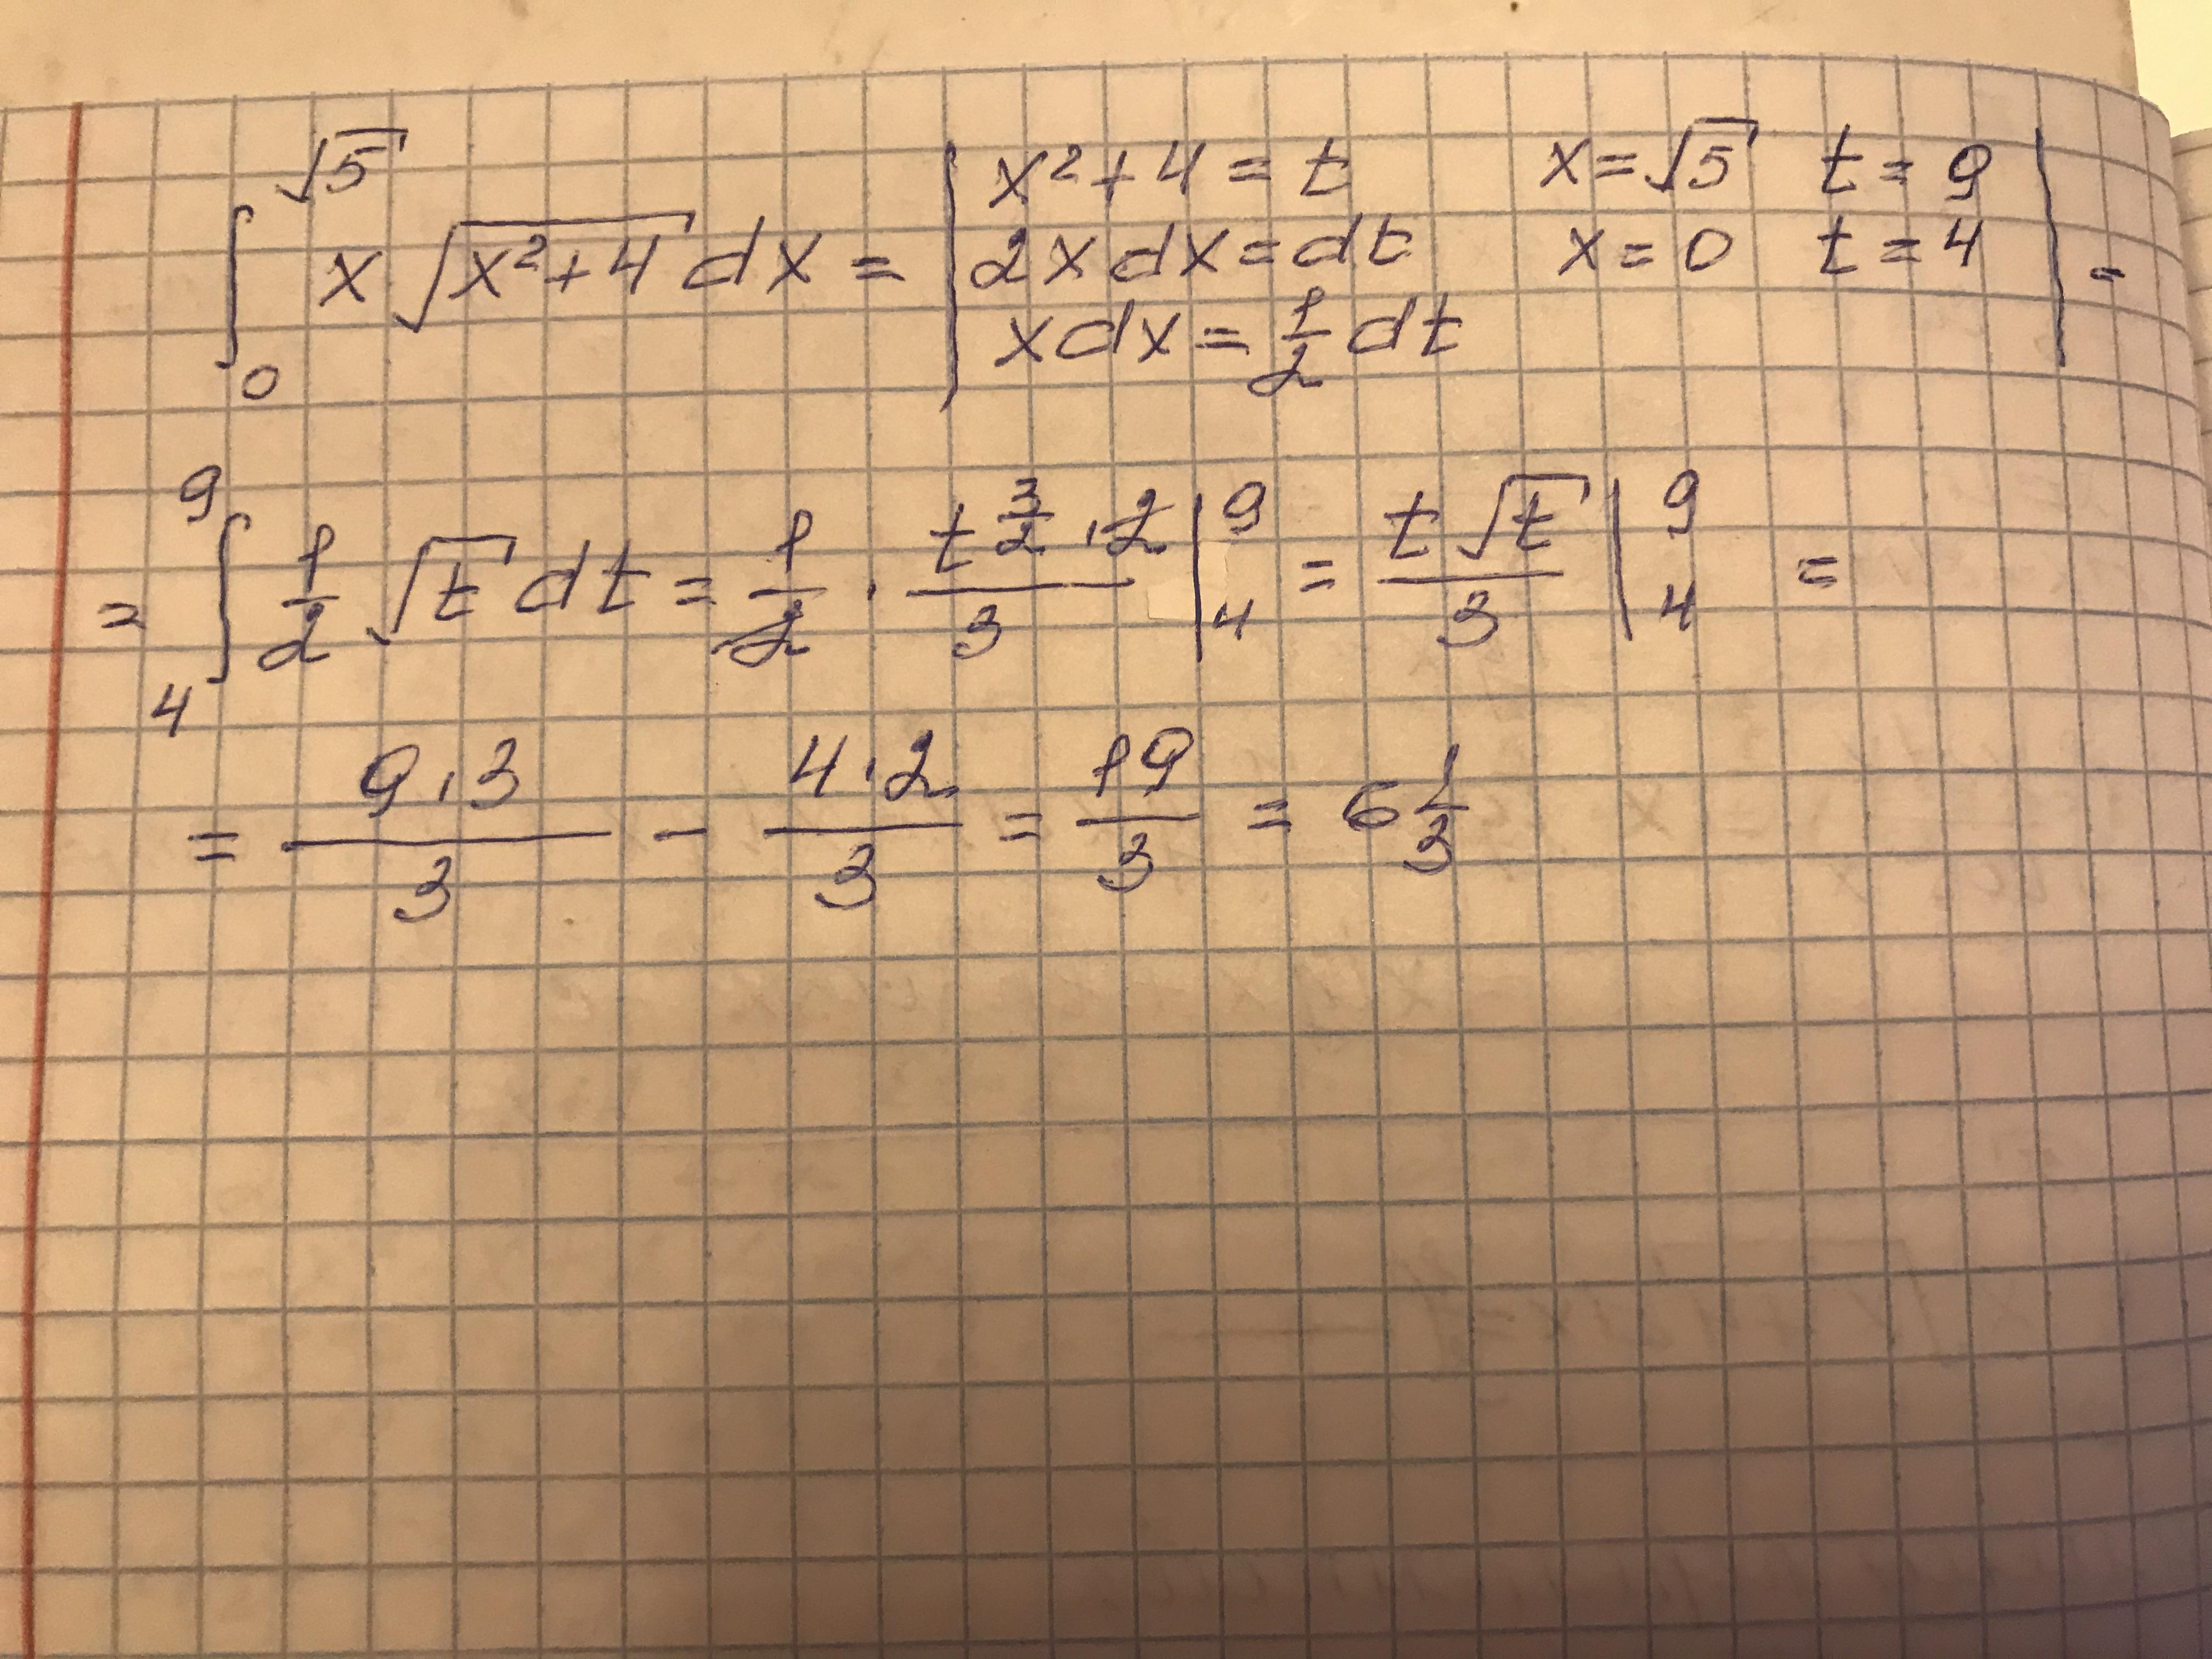 ∫₀^√5 x√(x²+4) dx = | x²+4 = t x=√5 t=9 | =
2x dx = dt x=0 t=4
x dx = 1/2 dt
= ∫₄⁹ 1/2 √t dt = 1/2 · (t^(3/2) · 2)/3 |₄⁹ = (t√t)/3 |₄⁹ =
= (9·3)/3 - (4·2)/3 = 19/3 = 6 1/3